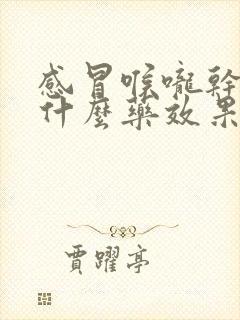 感冒喉嚨幹
什麼藥效果
賈躍亭